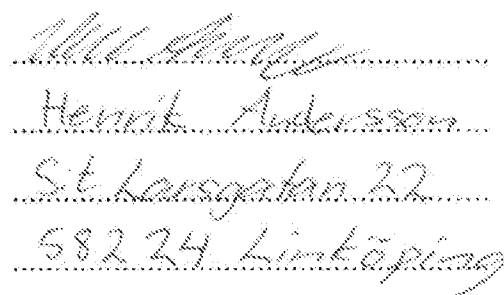 Henrik Andersson
St Larsgatan 22
582 24 Linköping